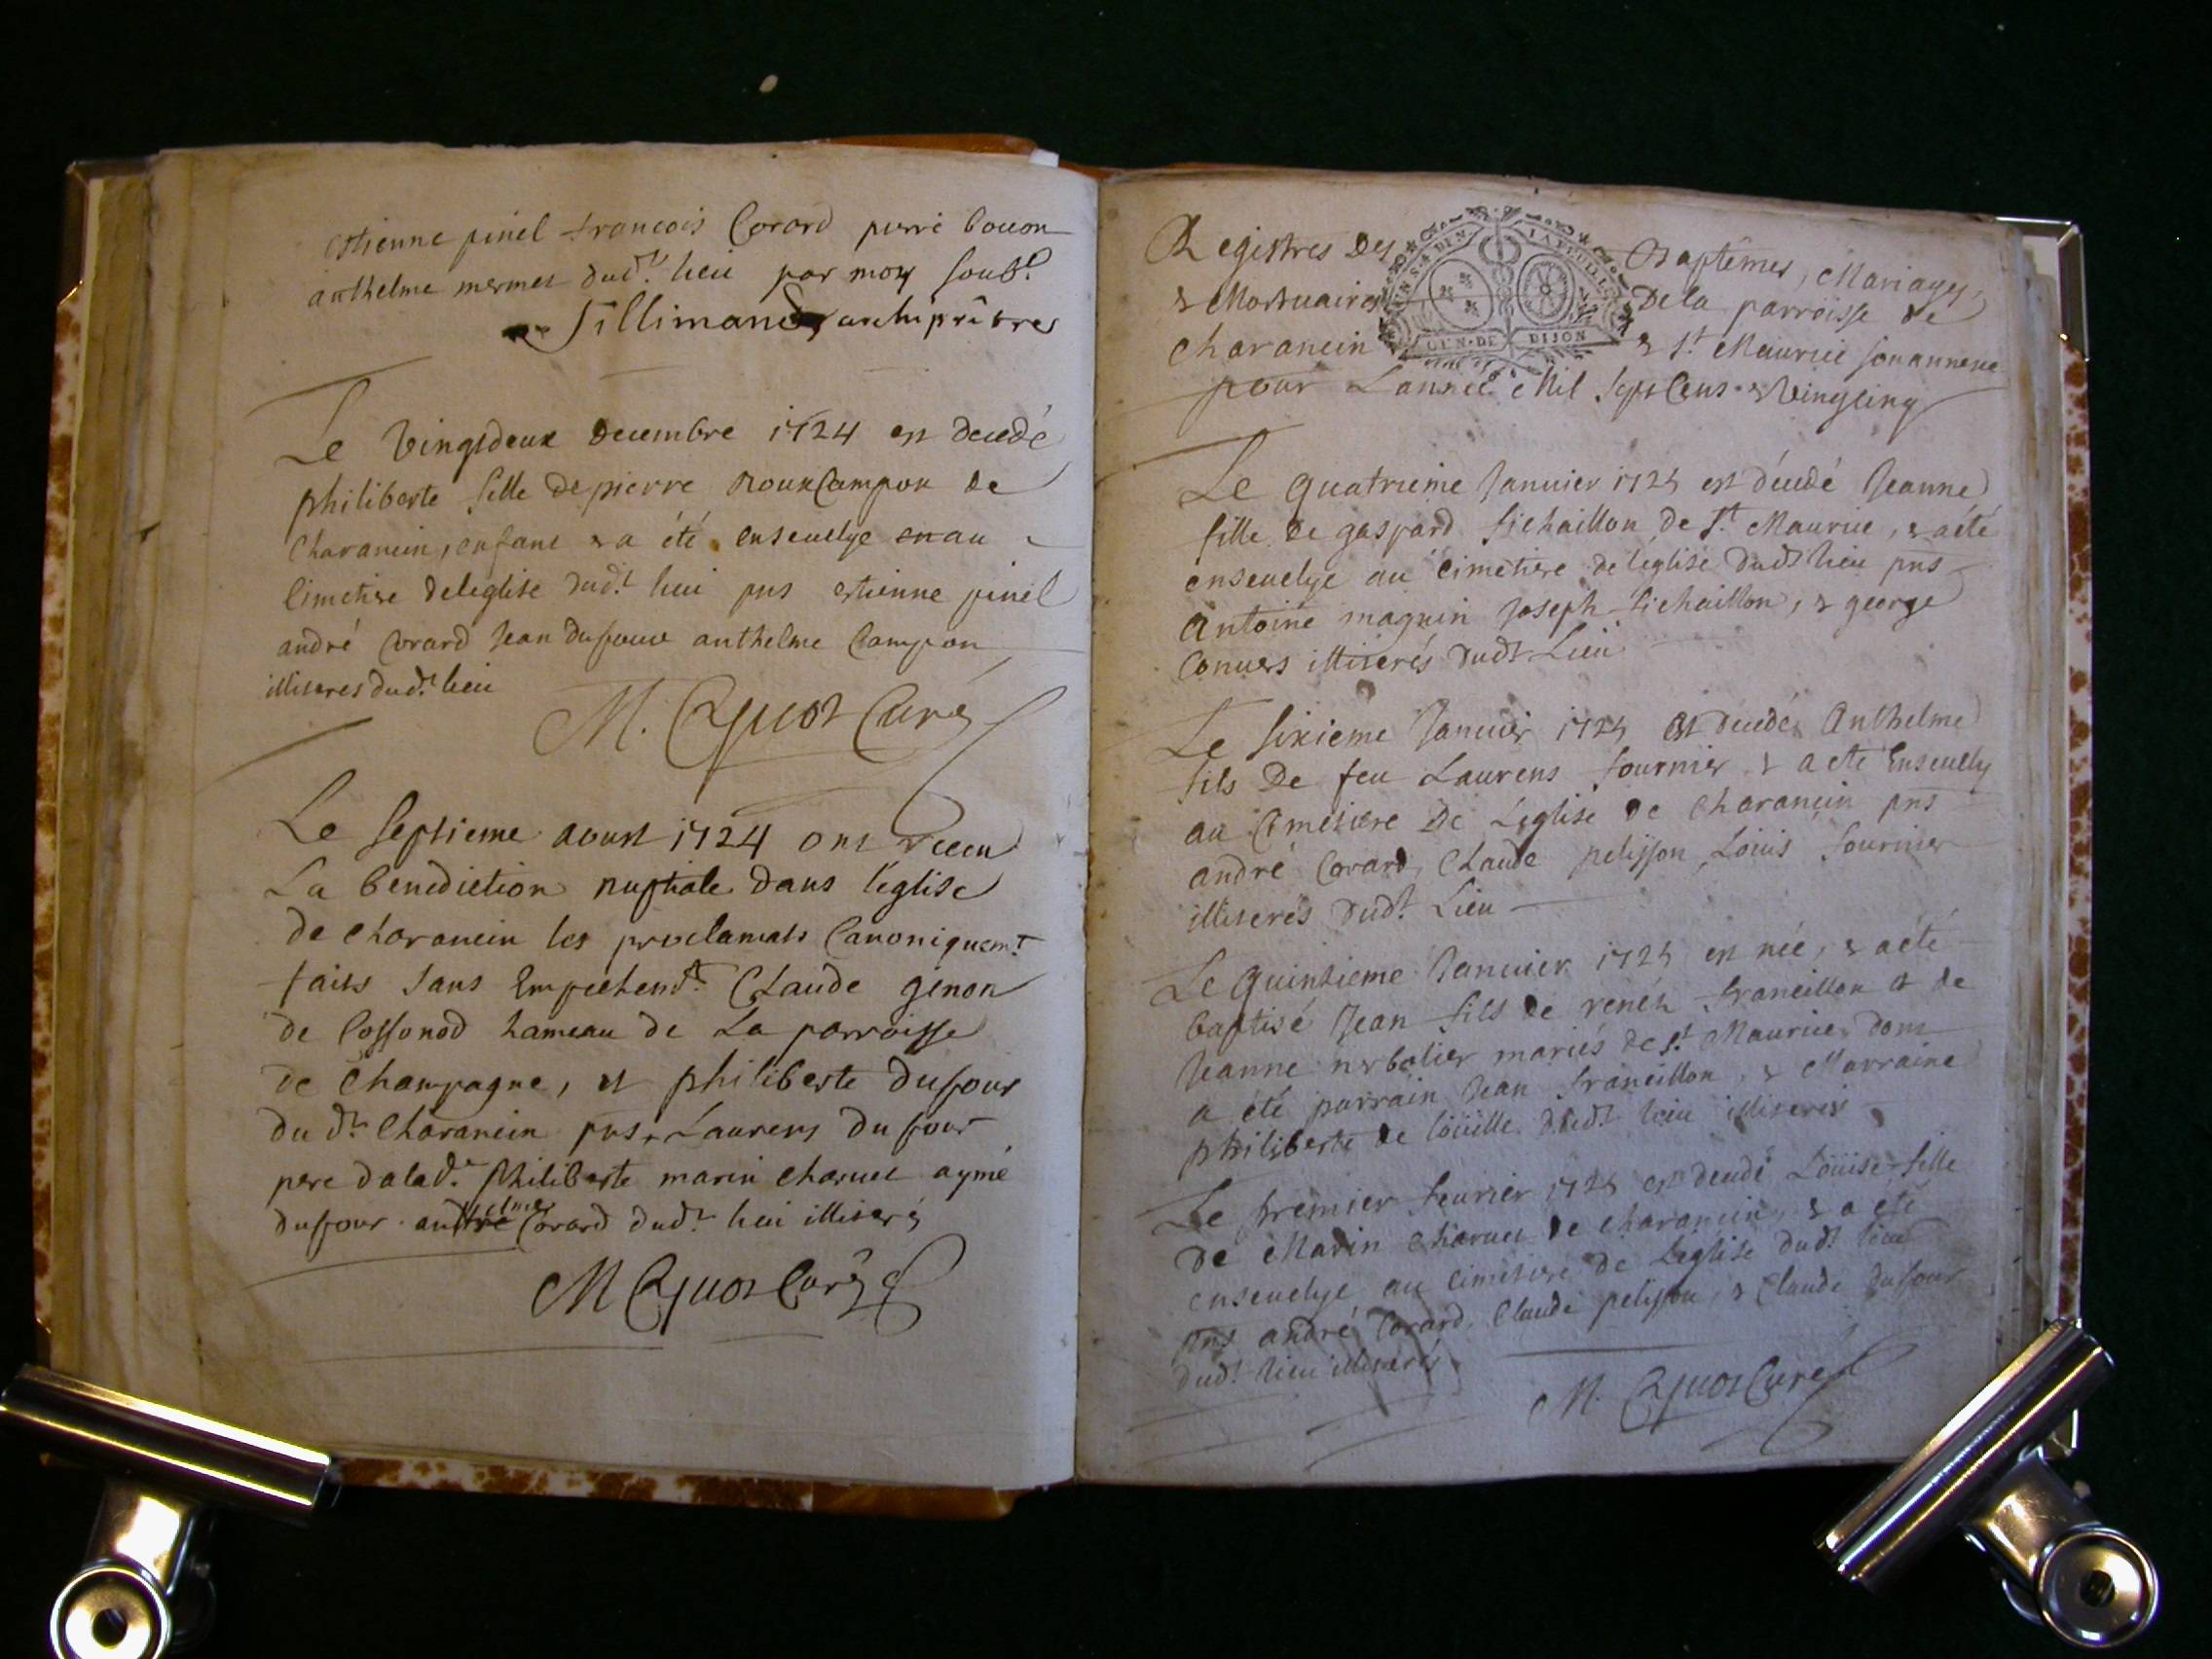 estienne pinel francois Corard pierre bouon
anthelme mermet dud.t lieu par moy soubs.é
Sillimand archiprêtre
Le Vingtdeux decembre 1724 est decedé
philiberte fille de pierre Rouxcampon de
Charancin, enfant & a été ensevelye au
Cimetire deleglise dud.t lieu pns estienne pinel
andré Corard Jean dufour anthelme Campon
illiteres dud.t lieu
M. Cyuot Curé
Le septieme aoust 1724 ont receu
La benediction nuptiale dans l'eglise
de charancin les proclamats Canoniquem.t
faits sans Empechem.t Claude genon
de Cossonod hameau de La parroisse
de Champagne, et philiberte dufour
du d.t Charancin pns. Laurens du four
pere dalad.e Philiberte marin charvet aymé
dufour anthelme Corard dud.t lieu illiterés
M Cyuot Curé
Registres Des Baptêmes, Mariages,
& Mortuaires De la parroisse de
Charancin & S.t Maurice
pour L'année Mil Sept Cens & Vingcinq
GEN. DE DIJON
Le quatrieme Januier 1725 est décédé Jeanne
fille de gaspard fichaillon de S.t Maurice, & a été
enseuelye au cimetiere de leglise dud.t lieu pns
Antoine magnin Joseph fichaillon, & george
Conuers illiterés dud.t Lieu
Le sixieme Januier 1725 est decedé Anthelme
fils De feu Laurens fournier & a eté Enseuely
au Cimetiere De L'église de Charancin pns
andré Corard, Claude pelisson, Loüis fournier
illiterés dud.t Lieu
Le quinzieme Januier 1725 est née, & a été
baptisé Jean fils de renér francillon et de
Jeanne nerbolier mariés de S.t Maurice dont
a été parrain Jean francillon, & Marraine
philiberte de loüille dud.t lieu illiterés
Le premier feurier 1725 est decedé Loüise fille
de Marin Charuet de Charancin, & a eté
enseuelye au cimetiere de Leglise dud.t lieu
pns andré Corard, Claude pelisson, & Claude dufour
dud.t lieu illiterés
M. Cyuot Curé